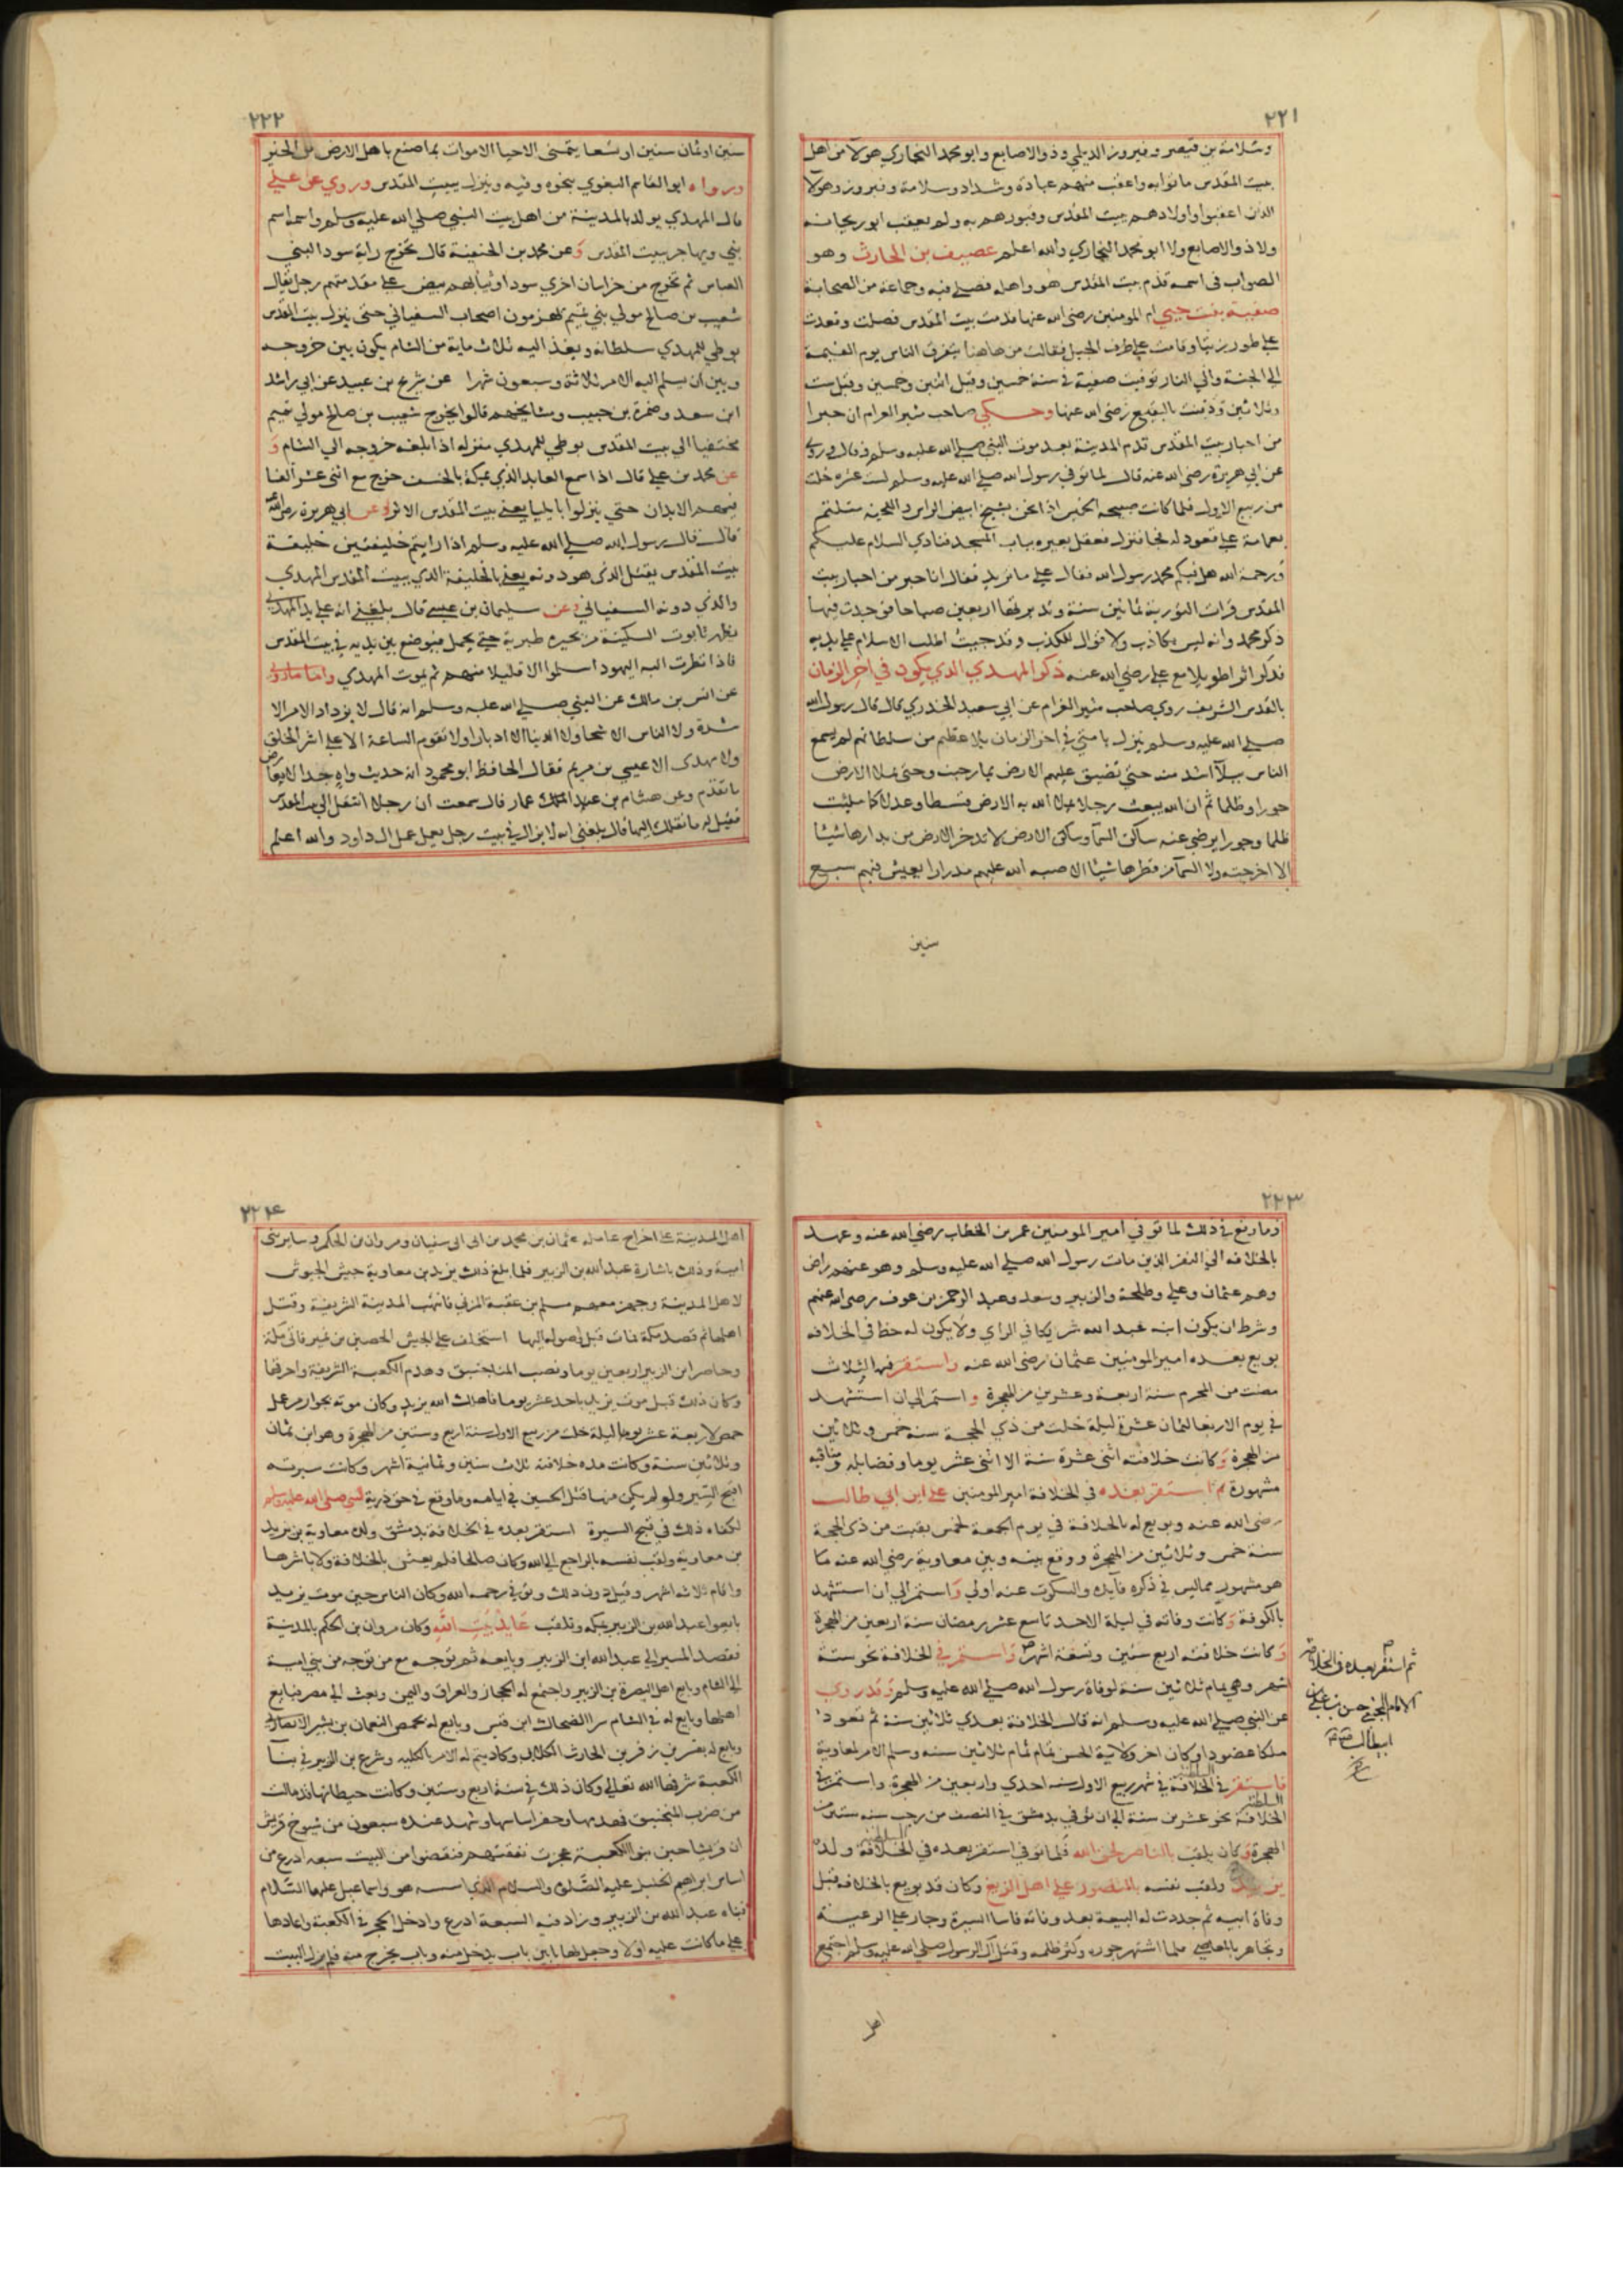 ٢٢١
وسلامة بن قيصر وفيروز الديلمي وذو الاصابع وابو محمد النجاري هولآ من اهل
بيت المقدس ماتوا به واعقب منهم عبادة وشداد وسلامة وفيروز وهولآ
الذين اعقبوا واولادهم ببيت المقدس وقبورهم به ولم يعقب ابو ريحانه
ولا ذو الاصابع ولا ابو محمد النجاري والله اعلم عصيف بن الحارث وهو
الصواب في اسمه قدم بيت المقدس هو واهله فصلى فيه وجماعة من الصحابة
صفية بنت حيي ام المومنين رضي الله عنها قدمت بيت المقدس فصلت وصعدت
على طور زيتا وقامت على طرف الجبل فقالت من هاهنا يتفرق الناس يوم القيمة
الى الجنة والي النار توفيت صفية في سنة خمسين وقيل اثنين وخمسين وقيل ست
وثلاثين ودفنت بالبقيع رضي الله عنها وحكي صاحب مثير الغرام ان حبرا
من احبار بيت المقدس قدم المدينة بعد موت النبي صلى الله عليه وسلم وروي
عن ابي هريرة رضي الله عنه قال لما توفي رسول الله صلى الله عليه وسلم لست عشرة خلت
من ربيع الاول فلما كانت صبيحه الخميس اذا نحن بشيخ ابيض الراس واللحية متلثم
بعمامة على قعود له فجا فنزل فعقل بعيره بباب المسجد فنادي السلام عليكم
ورحمة الله هل فيكم محمد رسول الله فقال علي ما تريد فقال انا حبر من احبار بيت
المقدس قرات التورية ثمانين سنة وتدبرتها اربعين صباحا فوجدت فيها
ذكر محمد وانه ليس بكاذب ولا قوال للكذب وقد جيت اطلب الاسلام على يديه
فذكر اثرا طويلا مع علي رضي الله عنه ذكر المهدي الذي يكون في اخر الزمان
بالقدس الشريف روي صاحب مثير الغرام عن ابي سعيد الخدري قال قال رسول الله
صلى الله عليه وسلم ينزل بامتي في اخر الزمان بلا عظيم من سلطانهم لم يسمع
الناس ببلآ اشد منه حتى تضيق عليهم الارض بما رحبت وحتى تملا الارض
جورا وظلما ثم ان الله يبعث رجلا يملا الله به الارض قسطا وعدلا كما مليت
ظلما وجورا يرضي عنه ساكن السمآ وساكن الارض لا تدخر الارض من بدارها شيئا
الا اخرجته ولا السمآ من قطرها شيئا الا صبه الله عليهم مدرارا يعيش فيهم سبع
سنين
٢٢٢
سنين او ثمان سنين او تسعا يتمنى الاحيا الاموات بما صنع باهل الارض من الخير
ورواه ابو القاسم البغوي بنحوه وفيه وينزل ببيت المقدس وروي عن علي
قال المهدي يولد بالمدينة من اهل بيت النبي صلى الله عليه وسلم واسمه اسم
نبي ويهاجر ببيت المقدس وعن محمد بن الحنفية قال تخرج راية سودا لبني
العباس ثم تخرج من خراسان اخري سودا وثيابهم بيض على مقدمتهم رجل يقال
شعيب بن صالح مولي بني تميم يهزمون اصحاب السفياني حتى ينزل بيت المقدس
يوطي للمهدي سلطانه وينفذ اليه ثلاث ماية من الشام يكون بين خروجه
وبين ان يسلم اليه الامر ثلاثة وسبعون شهرا عن شريح بن عبيد عن ابي راشد
ابن سعد وضمرة بن حبيب ومشايخهم قالوا يخرج شعيب بن صالح مولي تميم
مختفيا الى بيت المقدس يوطي للمهدي منزله اذا بلغه خروجه الى الشام و
عن محمد بن علي قال اذا سمع العايذ الذي بمكة بالخسف خرج مع اثنى عشر الفا
فيهم الابدال حتى ينزلوا بايليا يعني بيت المقدس الاثر وعن ابي هريرة رضي الله عنه
قال قال رسول الله صلى الله عليه وسلم اذا رايتم خليفتين خليفة
بيت المقدس يقتل الذي هو دونه يعني بالخليفة الذي ببيت المقدس المهدي
والذي دونه السفياني وعن سليمان بن عيسى قال بلغني انه على يد المهدي
يظهر تابوت السكينة من بحيرة طبرية حتى يحمل فيوضع بين يديه في بيت المقدس
فاذا نظرت اليه اليهود اسلموا الا قليلا منهم ثم يموت المهدي واما ما روي
عن انس بن مالك عن النبي صلى الله عليه وسلم انه قال لا يزداد الامر الا
شدة ولا الناس الا شحا ولا الدنيا الا ادبارا ولا تقوم الساعة الا على اشر الخلق
ولا مهدى الا عيسى بن مريم فقال الحافظ ابو محمود انه حديث واه جدا لا يعارض
ما تقدم وعن هشام بن عمار قال سمعت ان رجلا انتقل الى بيت المقدس
فقيل له ما نقلك اليها قال بلغني انه لا يزال في بيت رجل يعمل عمل ال داود والله اعلم
٢٢٣
وما وقع في ذلك لما توفي امير المومنين عمر بن الخطاب رضي الله عنه وعهد
بالخلافة الى النفر الذين مات رسول الله صلى الله عليه وسلم وهو عنهم راض
وهم عثمان وعلي وطلحة والزبير وسعد وعبد الرحمن بن عوف رضي الله عنهم
وشرط ان يكون ابنه عبد الله شريكا في الراي ولا يكون له حظ في الخلافه
بويع بعده امير المومنين عثمان رضي الله عنه واستقر فيها لثلاث
مضت من المحرم سنة اربعة وعشرين من الهجرة واستمر الى ان استشهد
في يوم الاربعا لثمان عشرة ليلة خلت من ذي الحجة سنة خمس وثلاثين
من الهجرة وكانت خلافته اثنى عشرة سنة الا اثنى عشر يوما وفضايله ومناقبه
مشهورة ثم استقر بعده في الخلافة امير المومنين علي ابن ابي طالب
رضي الله عنه وبويع له بالخلافة في يوم الجمعة لخمس بقيت من ذي الحجة
سنة خمس وثلاثين من الهجرة ووقع بينه وبين معاوية رضي الله عنه ما
هو مشهور مما ليس في ذكره فايدة والسكوت عنه اولى واستمر الى ان استشهد
بالكوفة وكانت وفاته في ليلة الاحد تاسع عشر رمضان سنة اربعين من الهجرة
وكانت خلافته اربع سنين وتسعة اشهر واستمر في الخلافة نحو ستة
اشهر وهي تمام ثلاثين سنة لوفاة رسول الله صلى الله عليه وسلم وقد روي
عن النبي صلى الله عليه وسلم انه قال الخلافة بعدي ثلاثين سنة ثم تعود
ملكا عضودا وكان اخر ولاية الحسن تمام ثلاثين سنه وسلم الامر لمعاوية
فاستقر في الخلافة في شهر ربيع الاول سنه احدي واربعين من الهجرة واستمر في
السلطنة
الخلافة نحو عشرين سنة الى ان توفي بدمشق في النصف من رجب سنه ستين من
الهجرة وكان يلقب بالناصر لحق الله فلما توفي استقر بعده في الخلافة ولده
يزيد ولقب نفسه بالمنصور على اهل الزيغ وكان قد بويع بالخلافه قبل
وفاة ابيه ثم جددت له البيعة بعد وفاته فاسا السيرة وجار على الرعية
وتجاهر بالمعاصي فلما اشتهر جوره وكثر ظلمه وقتل آل الرسول صلى الله عليه وسلم اجتمع
ثم استقر بعده في الخلافة
الامام المجتبى حسن بن علي بن
ابي طالب
اهل
٢٢٤
اهل المدينة على اخراج عامله عثمان بن محمد بن ابي سفيان ومروان بن الحكم وساير بني
امية وذلك باشارة عبد الله بن الزبير فلما بلغ ذلك يزيد بن معاوية جيش الجيوش
لاهل المدينة وجهز معهم مسلم بن عقبة المزني فانهب المدينة الشريفة وقتل
اهلها ثم قصد مكة فمات قبل وصوله اليها استخلف على الجيش الحصين بن نمير فاتى مكة
وحاصر ابن الزبير اربعين يوما ونصب المناجنيق وهدم الكعبة الشريفة واحرقها
وكان ذلك قبل موت يزيد باحد عشر يوما فاهلك الله يزيد وكان موته بحوارين من عمل
حمص لاربعة عشر ليلة خلت من ربيع الاول سنة اربع وستين من الهجرة وهو ابن ثمان
وثلاثين سنة وكانت مدة خلافته ثلاث سنين وثمانية اشهر وكانت سيرته
اقبح السير ولو لم يكن منها قتل الحسين في ايامه وما وقع في حق ذرية النبي صلى الله عليه وسلم
لكفاه ذلك في قبح السيرة استقر بعده في الخلافة بدمشق ولده معاوية بن يزيد
بن معاوية ولقب نفسه بالراجع الى الله وكان صالحا فلم يعش بالخلافة ولا باشرها
واقام ثلاثه اشهر وقيل دون ذلك وتوفي رحمه الله وكان الناس حين موت يزيد
بايعوا عبد الله بن الزبير بمكه وتلقب عايذ بيت الله وكان مروان بن الحكم بالمدينة
فقصد المسير الى عبد الله ابن الزبير وبايعه ثم توجه مع من توجه من بني امية
الى الشام وبايع اهل البصرة بن الزبير واجتمع له الحجاز والعراق واليمن وبعث الى مصر فبايع
اهلها وبايع له في الشام سرا الضحاك ابن قيس وبايع له بحمص النعمان بن بشير الانصاري
وبايع له بقنسرين زفر بن الحارث الكلابي وكاد يتم له الامر بالكليه وشرع بن الزبير في بنآ
الكعبة شرفها الله تعالي وكان ذلك في سنة اربع وستين وكانت حيطانها قد مالت
من ضرب المنجنيق فهدمها وحفر اساسها وشهد عنده سبعون من شيوخ قريش
ان قريشا حين بنوا الكعبة عجزت نفقتهم فنقصوا من البيت سبعه اذرع من
اساس ابراهيم الخليل عليه الصلاة والسلام الذي اسسه هو واسماعيل عليهما السلام
فبناه عبد الله بن الزبير وزاد فيه السبعة اذرع وادخل الحجر في الكعبة واعادها
على ما كانت عليه اولا وجعل لها بابين باب يدخل منه وباب يخرج منه فلم يزل البيت